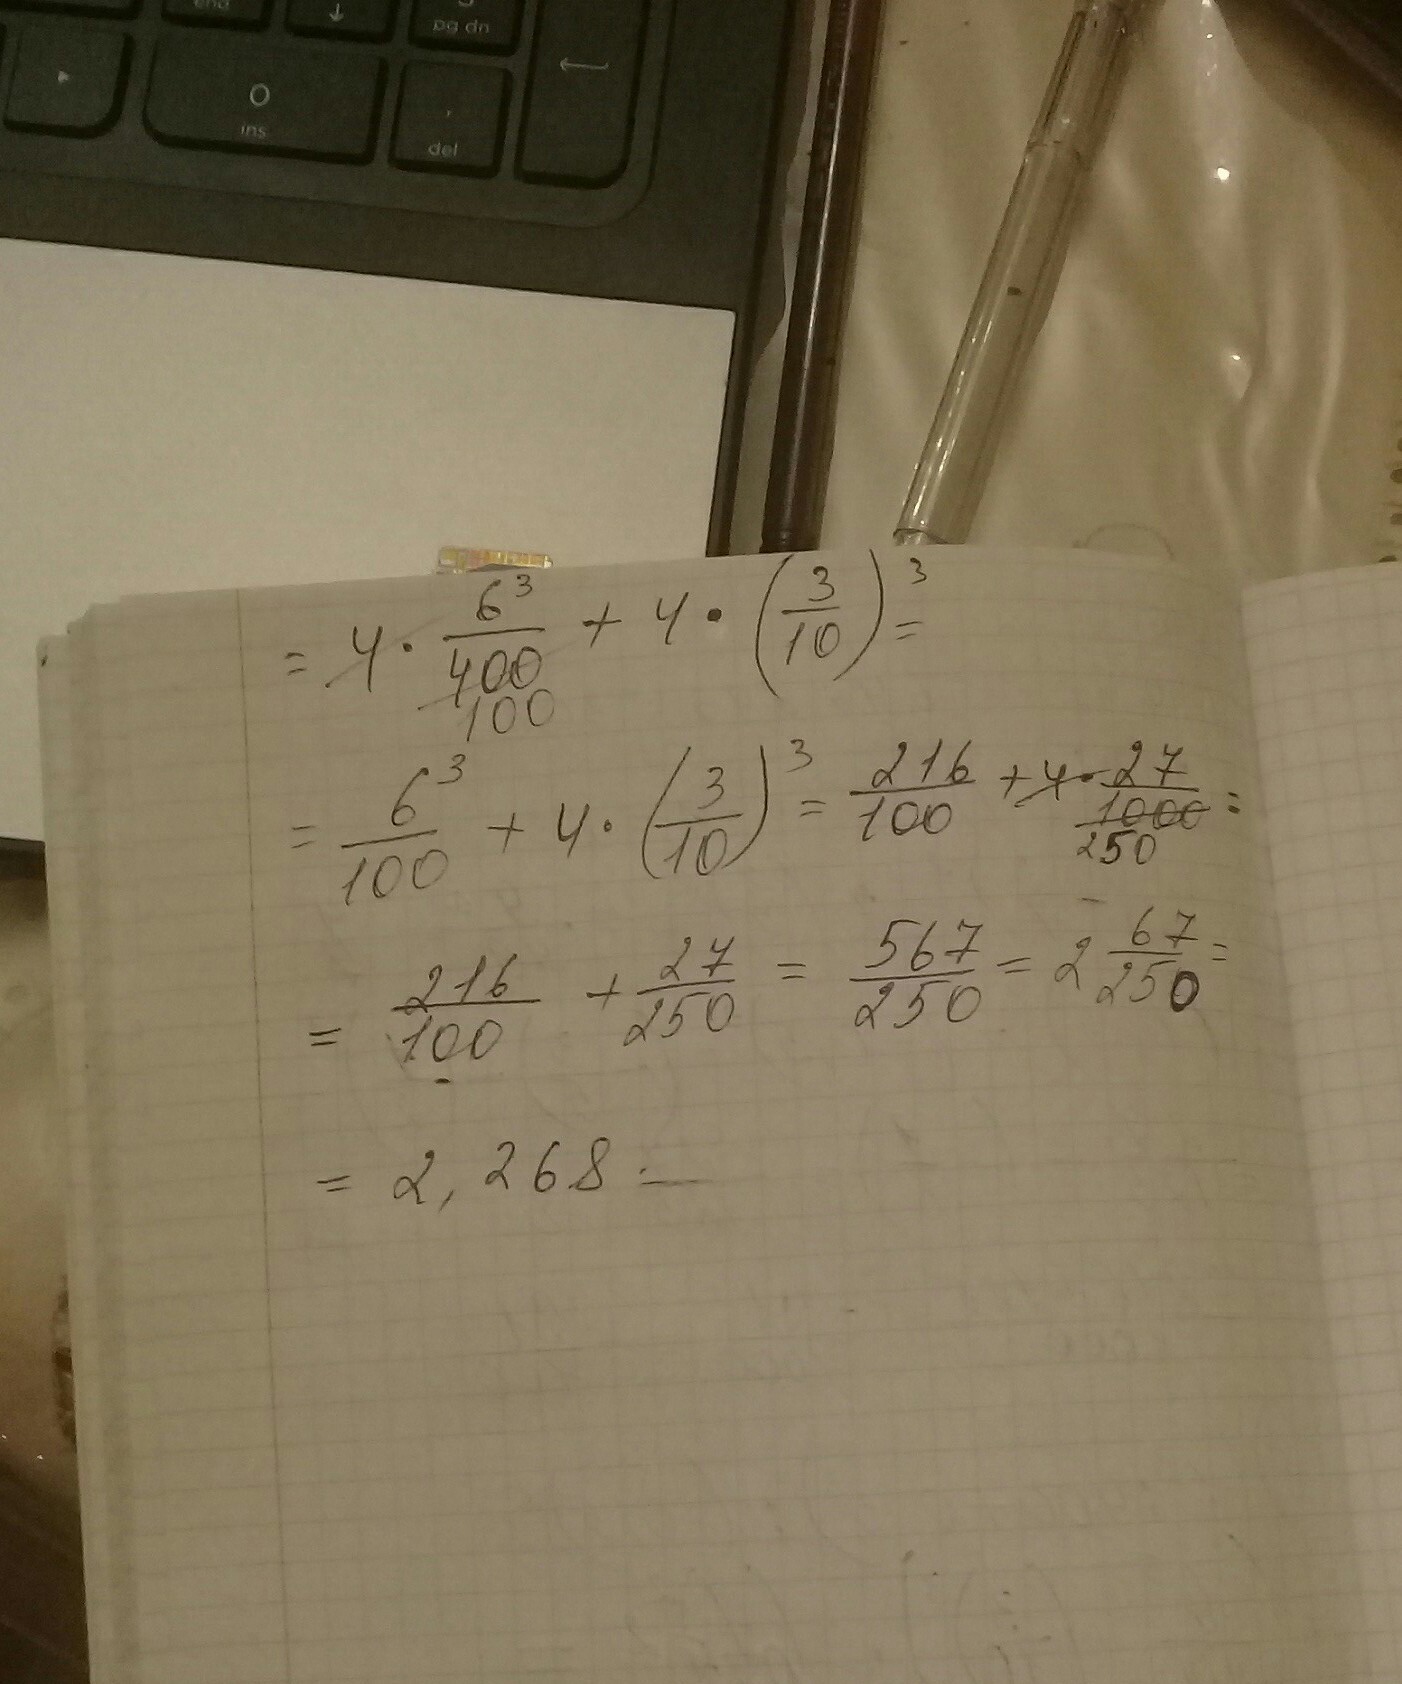 end ↓ pg dn
0 ins
, del
= 4 · 6³/400 100 + 4 · (3/10)³ =
= 6³/100 + 4 · (3/10)³ = 216/100 + 4 · 27/1000 250 =
= 216/100 + 27/250 = 567/250 = 2 67/250 =
= 2,268